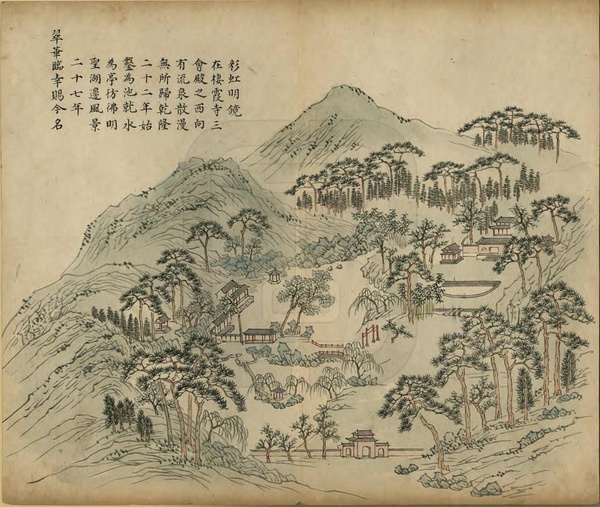 彩虹明鏡
在棲霞寺三
會殿之西向
有流泉散漫
無所歸乾隆
二十二年始
鑿為池就水
為亭彷彿明
聖湖邊風景
二十七年
翠華臨幸賜今名